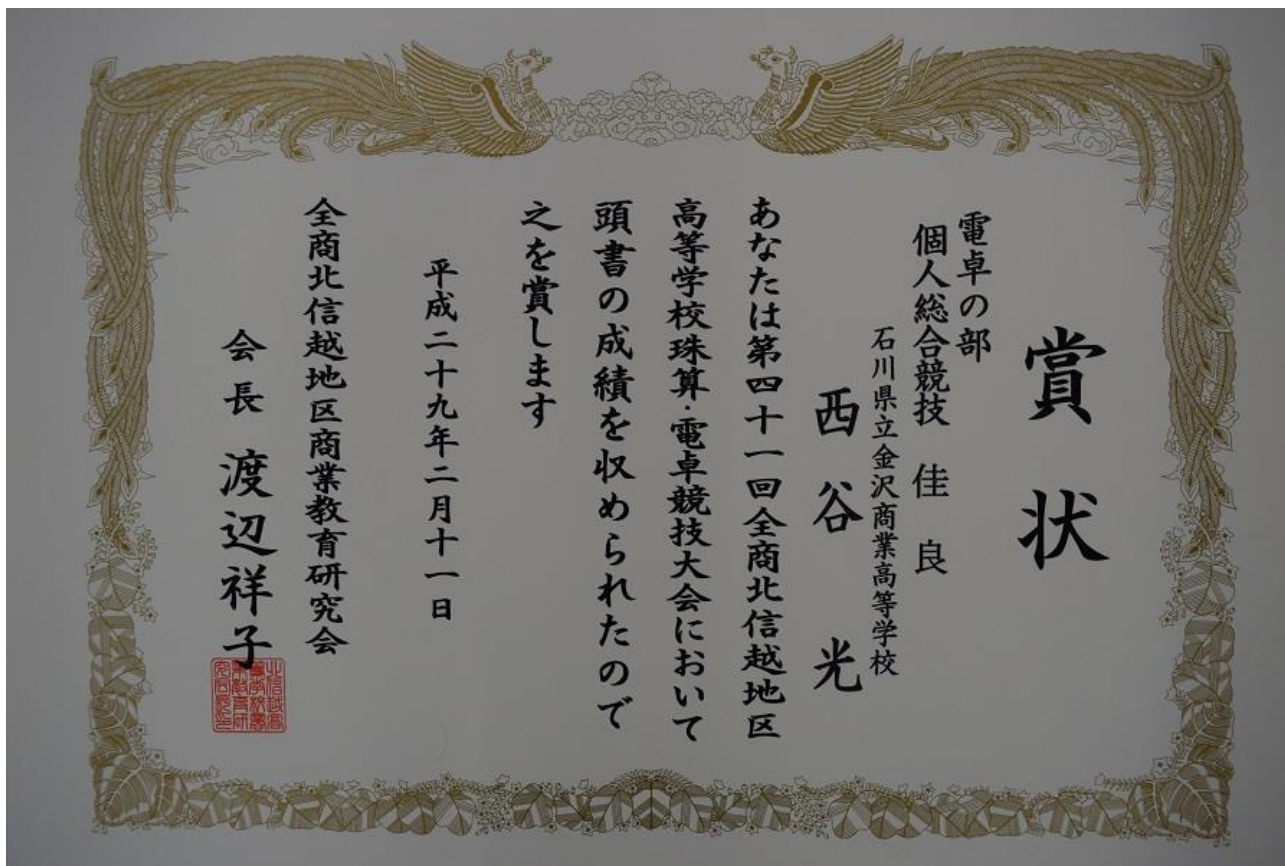 賞状
電卓の部
個人総合競技 佳良
石川県立金沢商業高等学校
西谷光
あなたは第四十一回全商北信越地区
高等学校珠算・電卓競技大会において
頭書の成績を収められたので
之を賞します
平成二十九年二月十一日
全商北信越地区商業教育研究会
会長 渡辺祥子